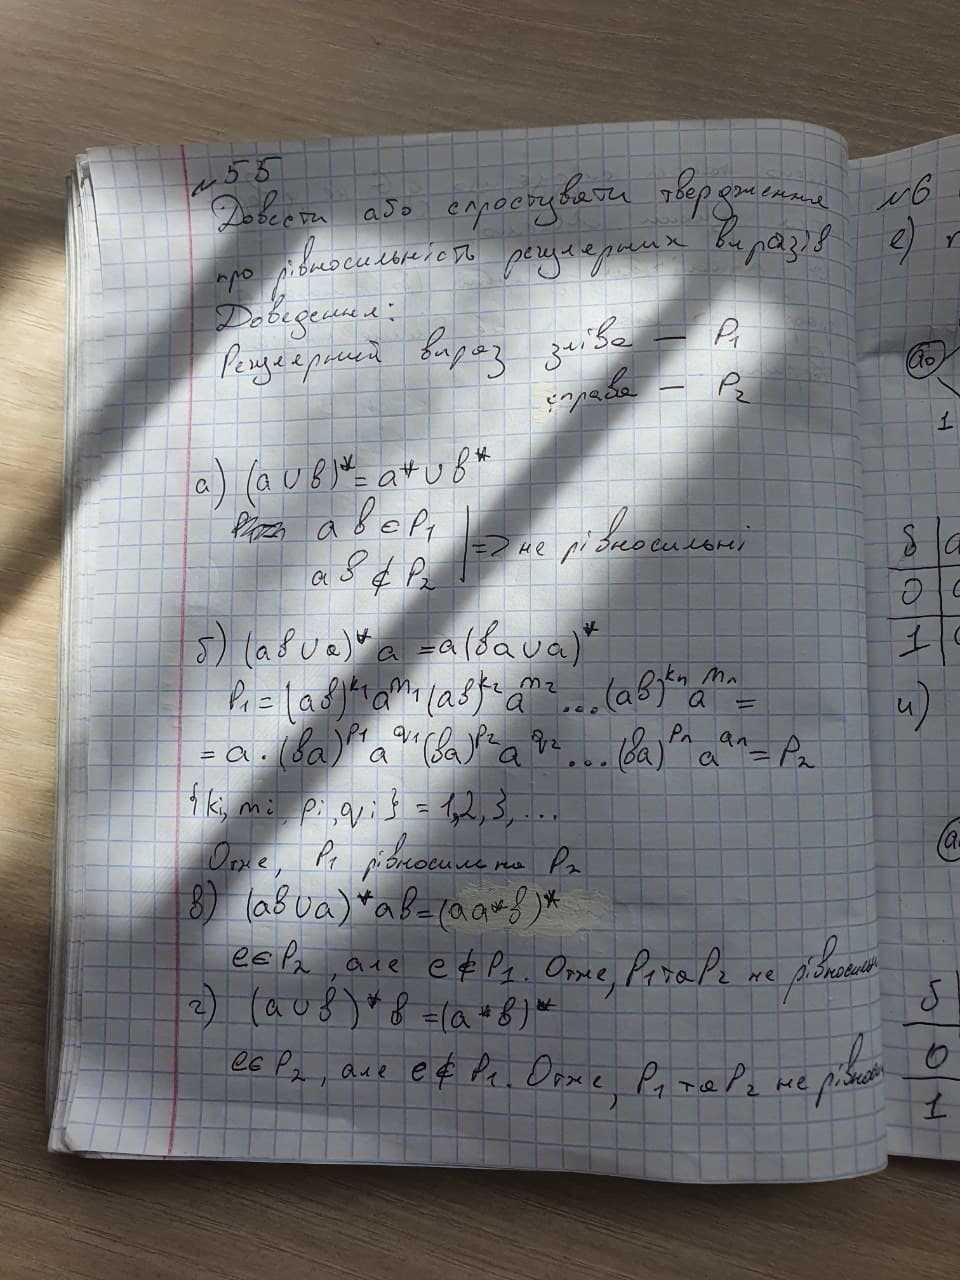 №55
Довести або спростувати твердження
про рівносильність регулярних виразів
Доведення:
Регулярний вираз зліва — P₁
справа — P₂
а) (a∪b)* = a*∪b*
ab ∈ P₁
ab ∉ P₂ => не рівносильні
б) (ab∪a)*a = a(ba∪a)*
P₁ = (ab)^k₁ a^m₁ (ab)^k₂ a^m₂ ... (ab)^kₙ a^mₙ =
= a·(ba)^p₁ a^q₁ (ba)^p₂ a^q₂ ... (ba)^pₙ a^qₙ = P₂
{kᵢ, mᵢ, pᵢ, qᵢ} = 1,2,3,...
Отже, P₁ рівносильна P₂
в) (ab∪a)*ab = (aa*b)*
e∈P₂, але e∉P₁. Отже, P₁ та P₂ не рівносильні
г) (a∪b)*b = (a*b)*
e∈P₂, але e∉P₁. Отже, P₁ та P₂ не
№6
е)
a₀
1
δ
0
1
и)
δ
0
1